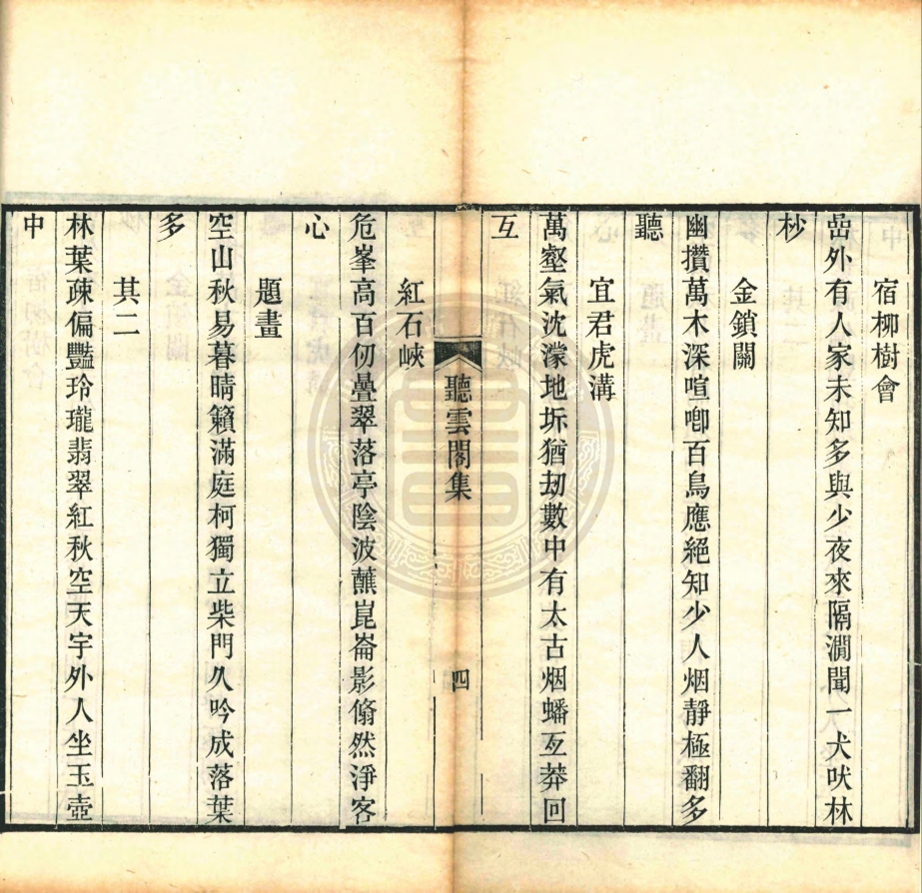 宿栁樹會
嵒外有人家未知多與少夜來隔澗聞一犬吠林
杪
金鎖關
幽攢萬木深喧啣百鳥應絕知少人烟靜極翻多
聽
宜君虎溝
萬壑氣沈濛地坼猶刧數中有太古烟蟠亙莽回
互
聽雲閣集
四
紅石峽
危峯高百仞疊翠落亭陰波蘸崑崙影翛然淨客
心
題畫
空山秋易暮晴籟滿庭柯獨立柴門久吟成落葉
多
其二
林葉疎偏豔玲瓏翡翠紅秋空天宇外人坐玉壺
中